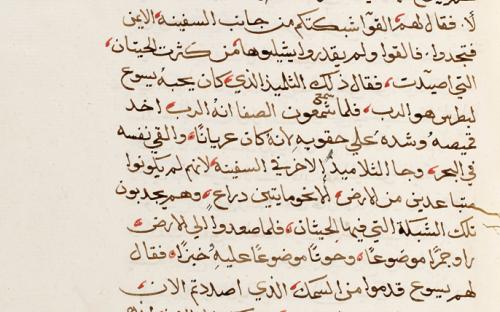 لا، فقال لهم القوا شبكتكم من جانب السفينه الايمن
فتجدوا، فالقوا ولم يقدروا يشيلوها من كثرت الحيتان
التي اصيدت، فقال ذلك التلميذ الذي كان يحبه يسوع
لبطرس هو الرب، فلما سمع شمعون الصفا انه الرب اخد
قميصه وشده علي حقويه لانه كان عريانا، والقي نفسه
في البحر، وجا التلاميذ الاخر في السفينه لانهم لم يكونوا
متباعدين من الارض، الا نحو مايتين دراع، وهم يجدبون
تلك الشبكة التي فيها الحيتان، فلما صعدوا الى الارض
راو جمرا موضوعا، وحوتا موضوعا عليه خبزا، فقال
لهم يسوع قدموا من السمك الذي اصدتم الان